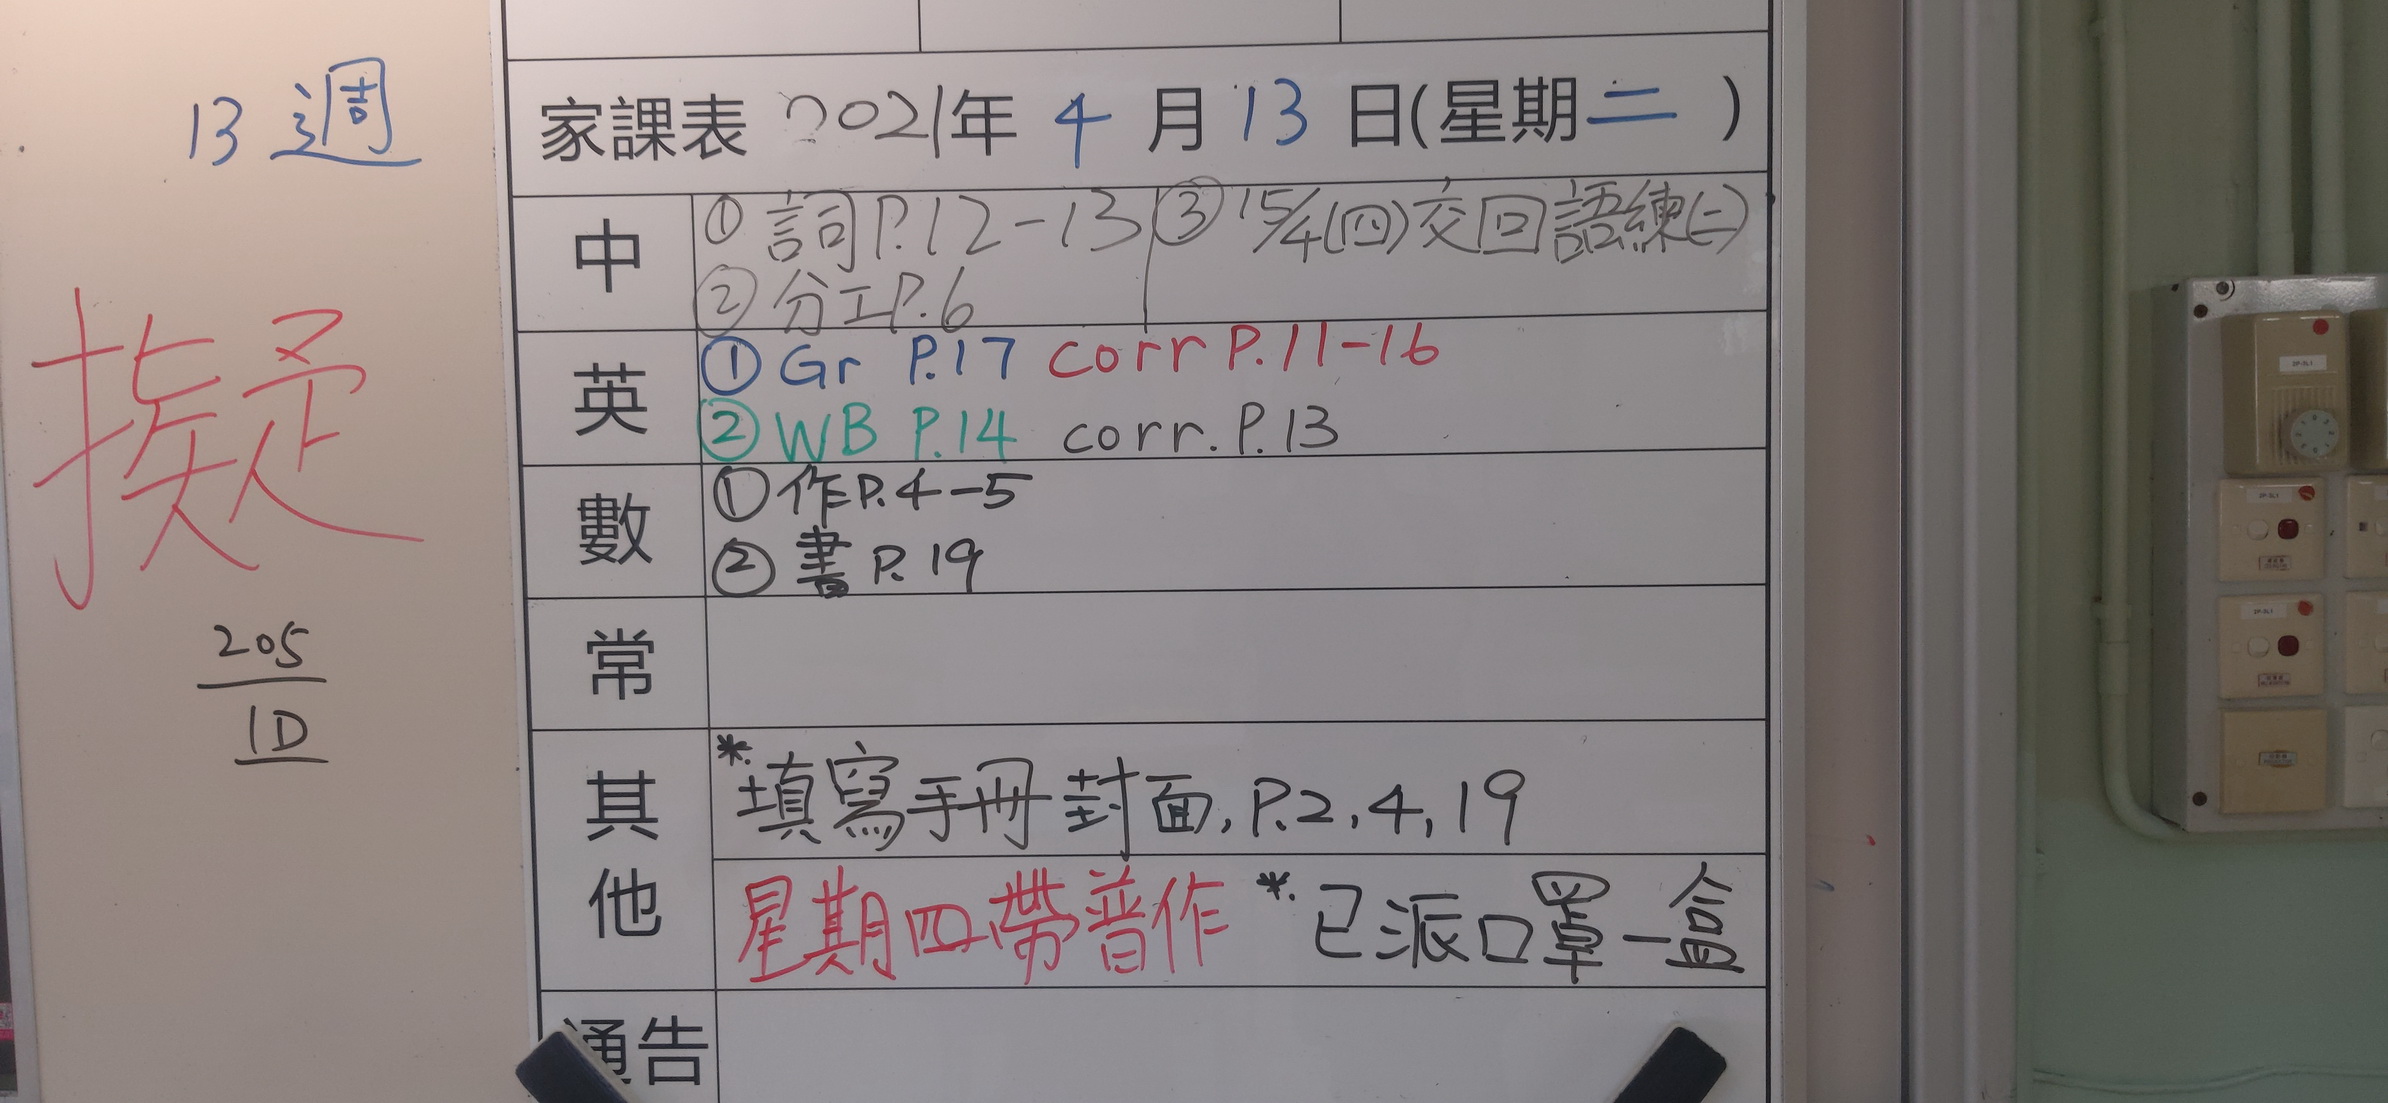 13 週
擬
205
1D
家課表 2021年 4 月 13 日(星期二 )
中
① 詞 P.12-13
② 分工 P.6
③ 15/4(四)交回語練(二)
英
① Gr P.17 corr P.11-16
② WB P.14 corr. P.13
數
① 作 P.4-5
② 書 P.19
常
其他
*填寫手冊封面, P.2, 4, 19
星期四帶普作 *已派口罩一盒
通告